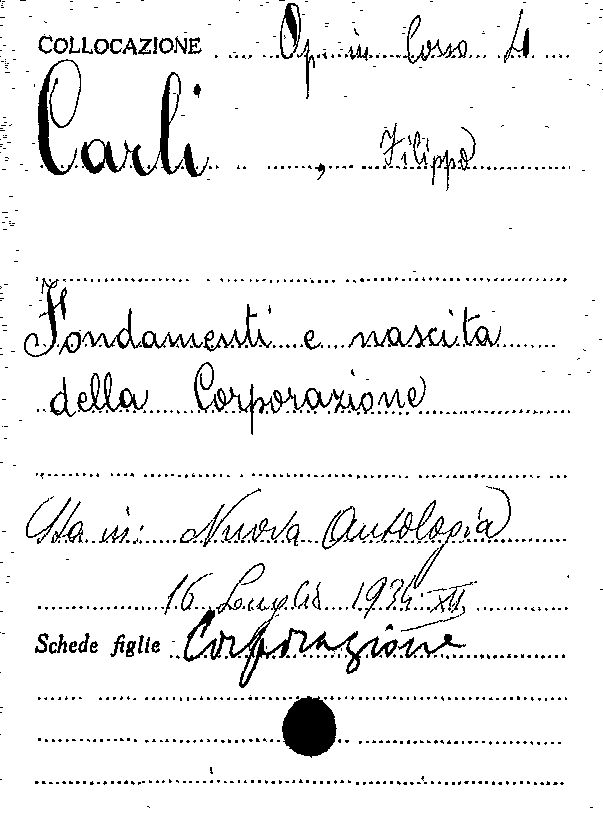 COLLOCAZIONE Op. in Corso 4
Carli, Filippo
Fondamenti e nascita
della Corporazione
Sta in: Nuova Antologia
16 Luglio 1934 XII
Schede figlie Corporazione